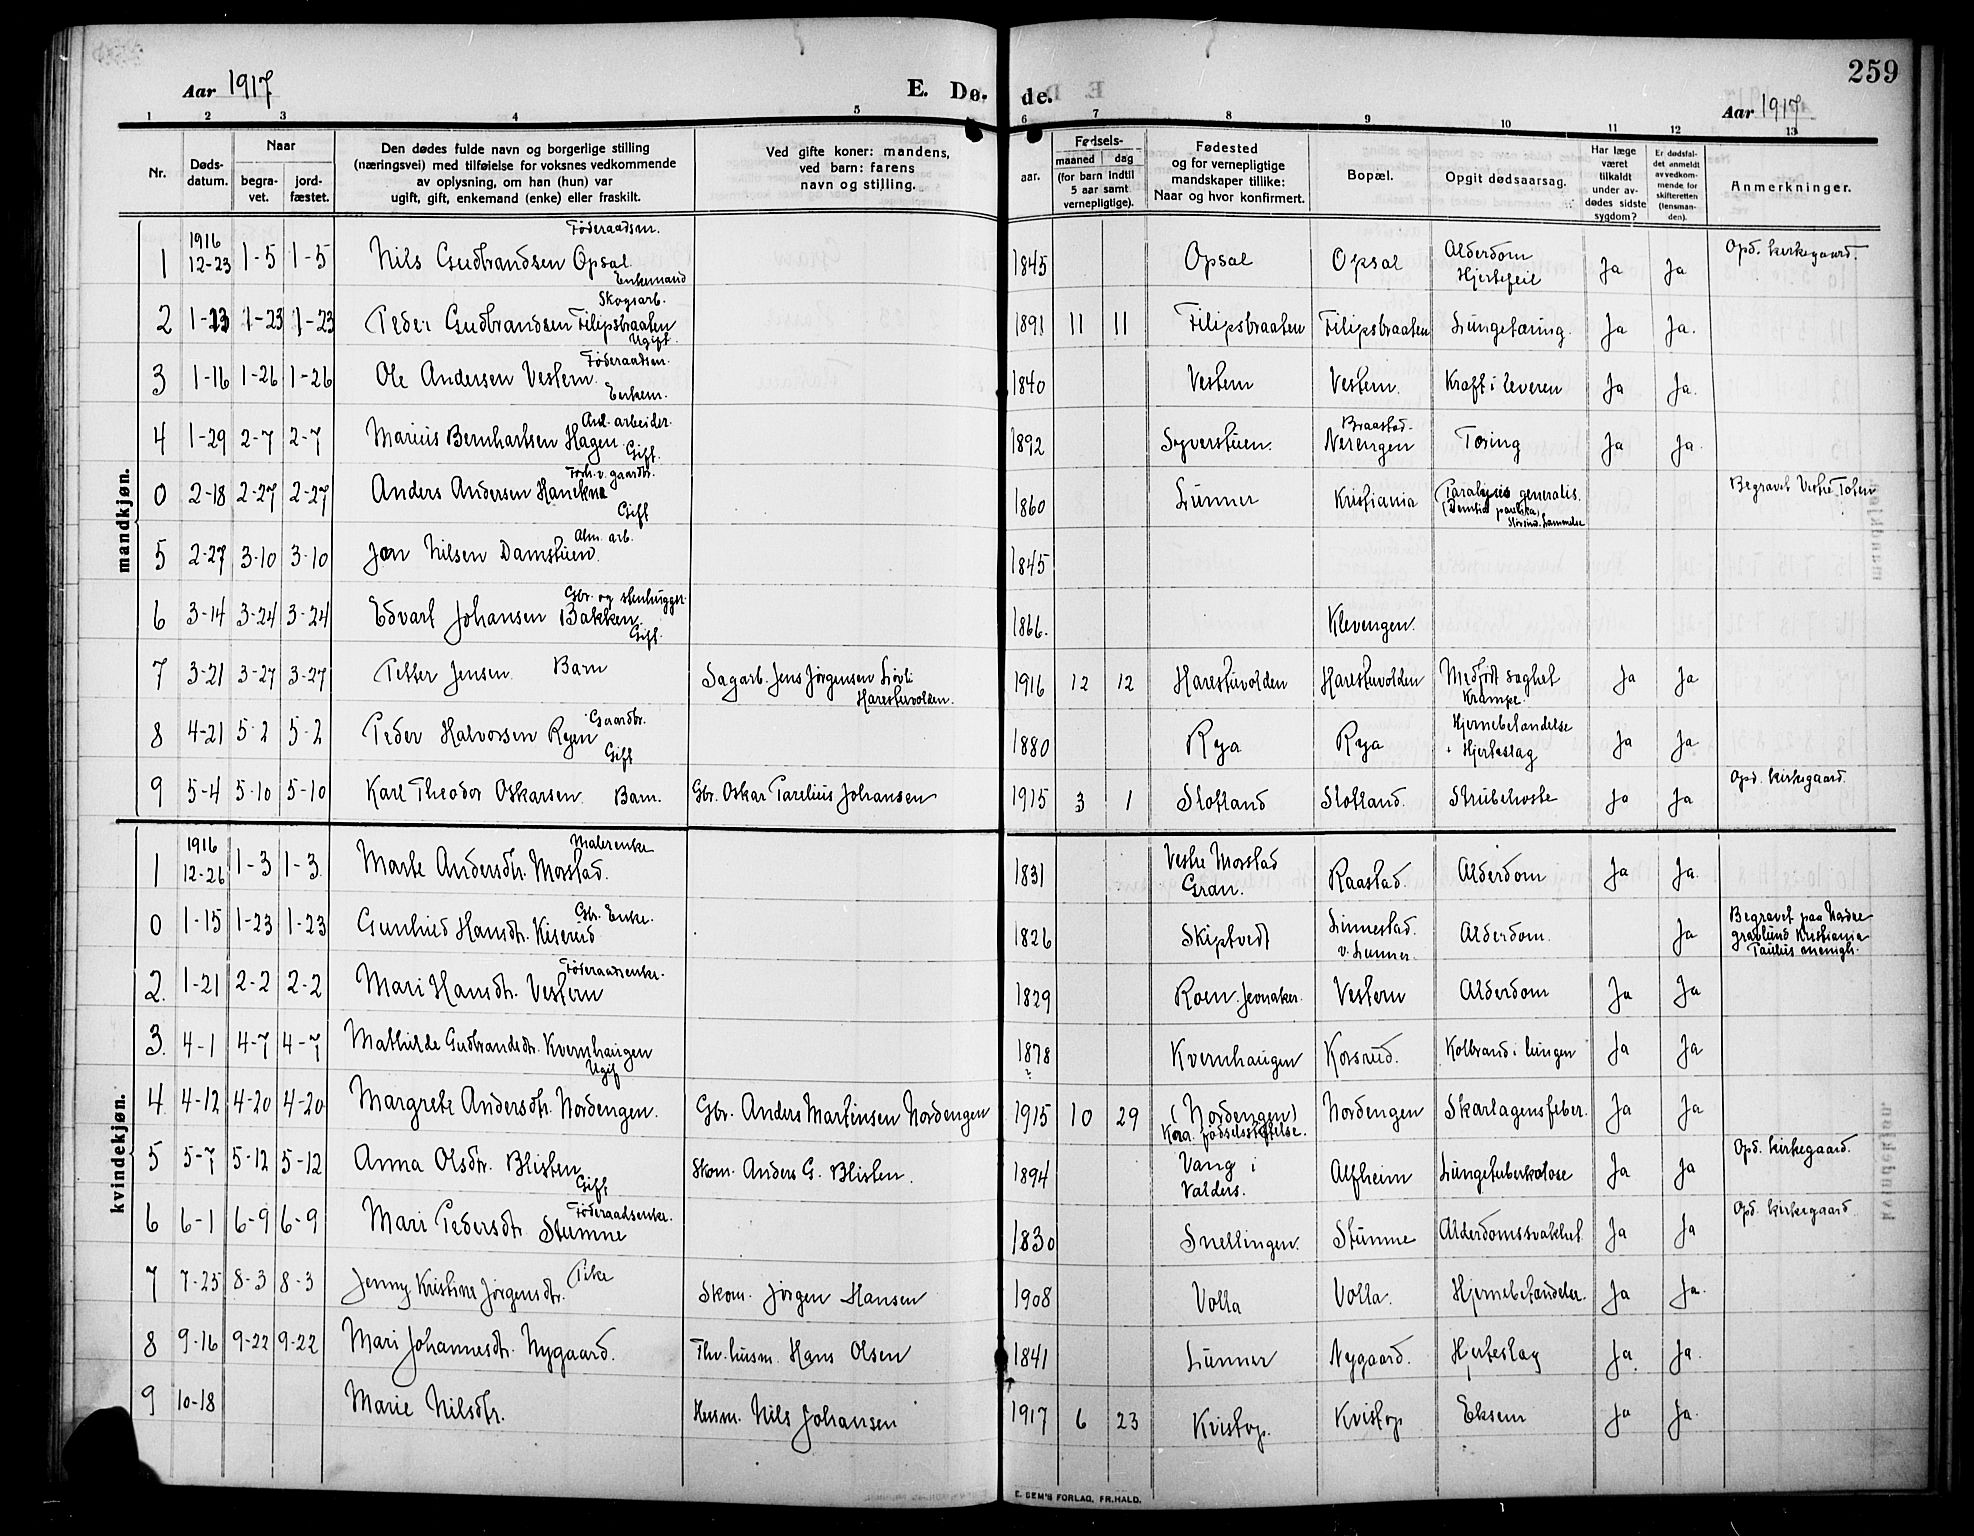 259
Aar 1917
E. Dø- de.
Aar 1917
1 2 3 4 5 6 7 8 9 10 11 12 13
Nr.
Døds-datum.
Naar
begra-vet.
jord-fæstet.
Den dødes fulde navn og borgerlige stilling
(næringsvei) med tilføielse for voksnes vedkommende
av oplysning, om han (hun) var
ugift, gift, enkemand (enke) eller fraskilt.
Ved gifte koner: mandens,
ved barn: farens
navn og stilling.
aar.
Fødsels-
maaned dag
(for barn indtil
5 aar samt
vernepligtige).
Fødested
og for vernepligtige
mandskaper tillike:
Naar og hvor konfirmert.
Bopæl.
Opgit dødsaarsag.
Har læge
været
tilkaldt
under av-
dødes sidste
sygdom?
Er dødsfal-
det anmeldt
av vedkom-
mende for
skifteretten
(lensman-
den).
Anmerkninger.
mandkjøn.
1 1916 12-23 1-5 1-5 Nils Gudbrandsen Opsal Føderaadsm. Enkemand 1845 Opsal Opsal Alderdom Hjertefeil Ja Ja Opd. kirkegaard.
2 1-13 1-23 1-23 Peder Gudbrandsen Filipsbraaten Skogsarb. Ugift 1891 11 11 Filipsbraaten Filipsbraaten Lungetæring. Ja Ja.
3 1-16 1-26 1-26 Ole Andersen Vestern. Føderaadsm. Enkem. 1840 Vestern Vestern. Kræft i leveren Ja Ja.
4 1-29 2-7 2-7 Marius Bernhartsen Hagen. Anl. arbeider. Gift. 1892 Syverstuen. Braastad. Nerengen Tæring Ja Ja.
0 2-18 2-27 2-27 Anders Andersen Hanekne Forh. v. gaardbr. Gift 1860 Lunner Kristiania Paralysis generalis. Begravet Vestre Toten
5 2-27 3-10 3-10 Jon Nilsen Damstuen. Alm. arb. 1845
6 3-14 3-24 3-24 Edvart Johansen Bakken. Gbr. og stenhugger. Gift. 1866. Klevengen.
7 3-21 3-27 3-27 Petter Jensen. Barn Sagarb. Jens Jørgensen Lioli Harestuvolden. 1916 12 12 Harestuvolden Harestuvolden Medfødt svaghet Krampe. Ja Ja
8 4-21 5-2 5-2 Peder Halvorsen Ryen Gaardbr. Gift 1880 Rya Rya Hjernebetændelse Hjerteslag Ja Ja
9 5-4 5-10 5-10 Karl Theodor Oskarsen. Barn. Gbr. Oskar Parelius Johansen 1915 3 1 Slotland Slotland. Strubehoste Ja Ja Opd. kirkegaard.
kvindekjøn.
1 1916 12-26 1-3 1-3 Marte Andersdtr. Morstad. Malerenke 1831 Vestre Morstad Gran. Raastad. Alderdom Ja Ja.
0 1-15 1-23 1-23 Gunhild Hansdtr. Kiserud Gbr. Enke. 1826 Skiptvedt Linnestad. v. Lunner. Alderdom. Ja Begravet paa Nordre gravlund Kristiania Paulus menigh.
2. 1-21 2-2 2-2 Mari Hansdtr. Vestern Føderaadsenke. 1829 Roen. Jevnaker. Vestern Alderdom Ja Ja
3. 4-1 4-7 4-7 Mathilde Gudbrandsdtr. Kvernhaugen Ugif 1878 ? Kvernhaugen Korsrud. Kolbrand i lungen Ja Ja
4. 4-12 4-20 4-20 Margrete Andersdtr. Nordengen. Gbr. Anders Martinsen Nordengen 1915 10 29 (Nordengen) Kra. fødselsstiftelse. Nordengen Skarlagensfeber. Ja Ja
5 5-7 5-12 5-12 Anna Olsdtr. Blisten Gift Skom. Anders G. Blisten. 1894 Vang i Valders. Alfheim Lungetuberkolose Ja Ja Opd. kirkegaard.
6 6-1 6-9 6-9 Mari Pedersdtr Stumne Føderaadsenke. 1830 Snellingen. Stumne Alderdomssvakhet Ja Ja Opd. kirkegaard
7 7-25 8-3 8-3 Jenny Kristine Jørgensdtr. Pike Skom. Jørgen Hansen 1908 Volla Volla. Hjernebetændelse. Ja Ja.
8 9-16 9-22 9-22 Mari Johannesdtr. Nygaard. Fhv. husm. Hans Olsen 1841 Lunner Nygaard. Hjerteslag Ja Ja.
9 10-18 Marie Nilsdtr. Husm. Nils Johansen 1917 6 23 Kvistop. Kvistop Eksem Ja Ja.
E. SEM'S FORLAG, FR.HALD.